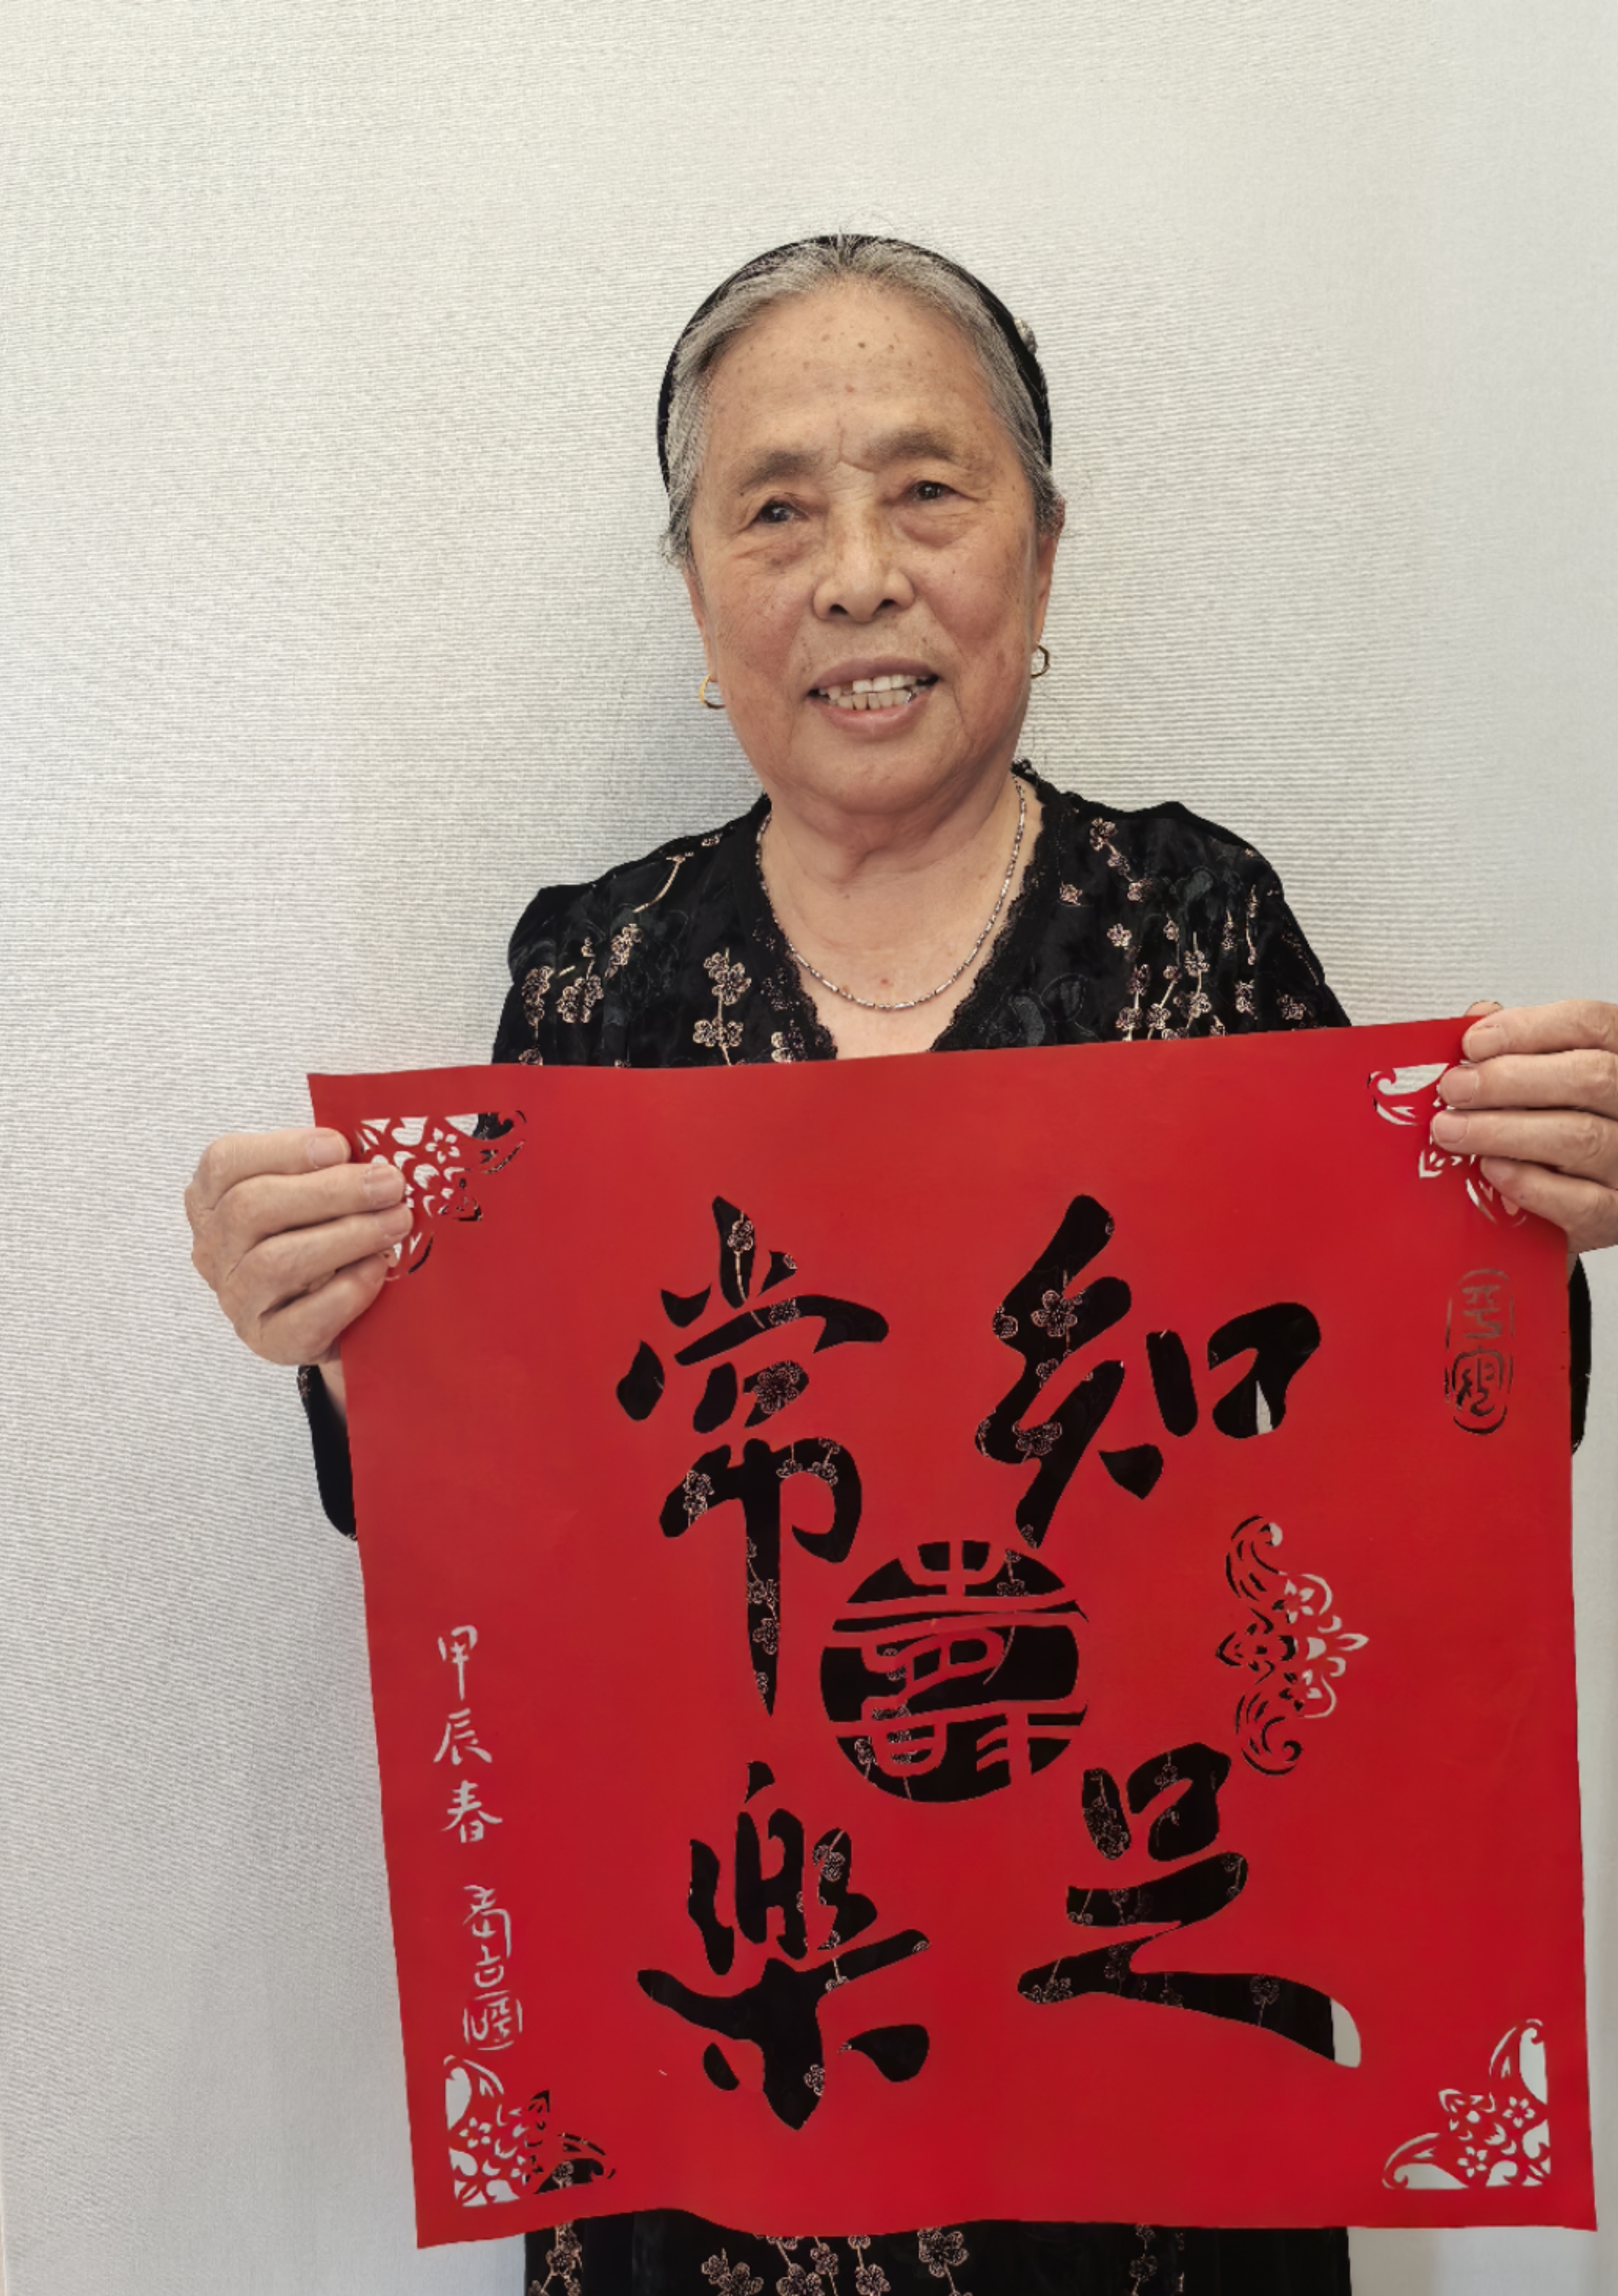 知足
常樂
壽
甲辰春